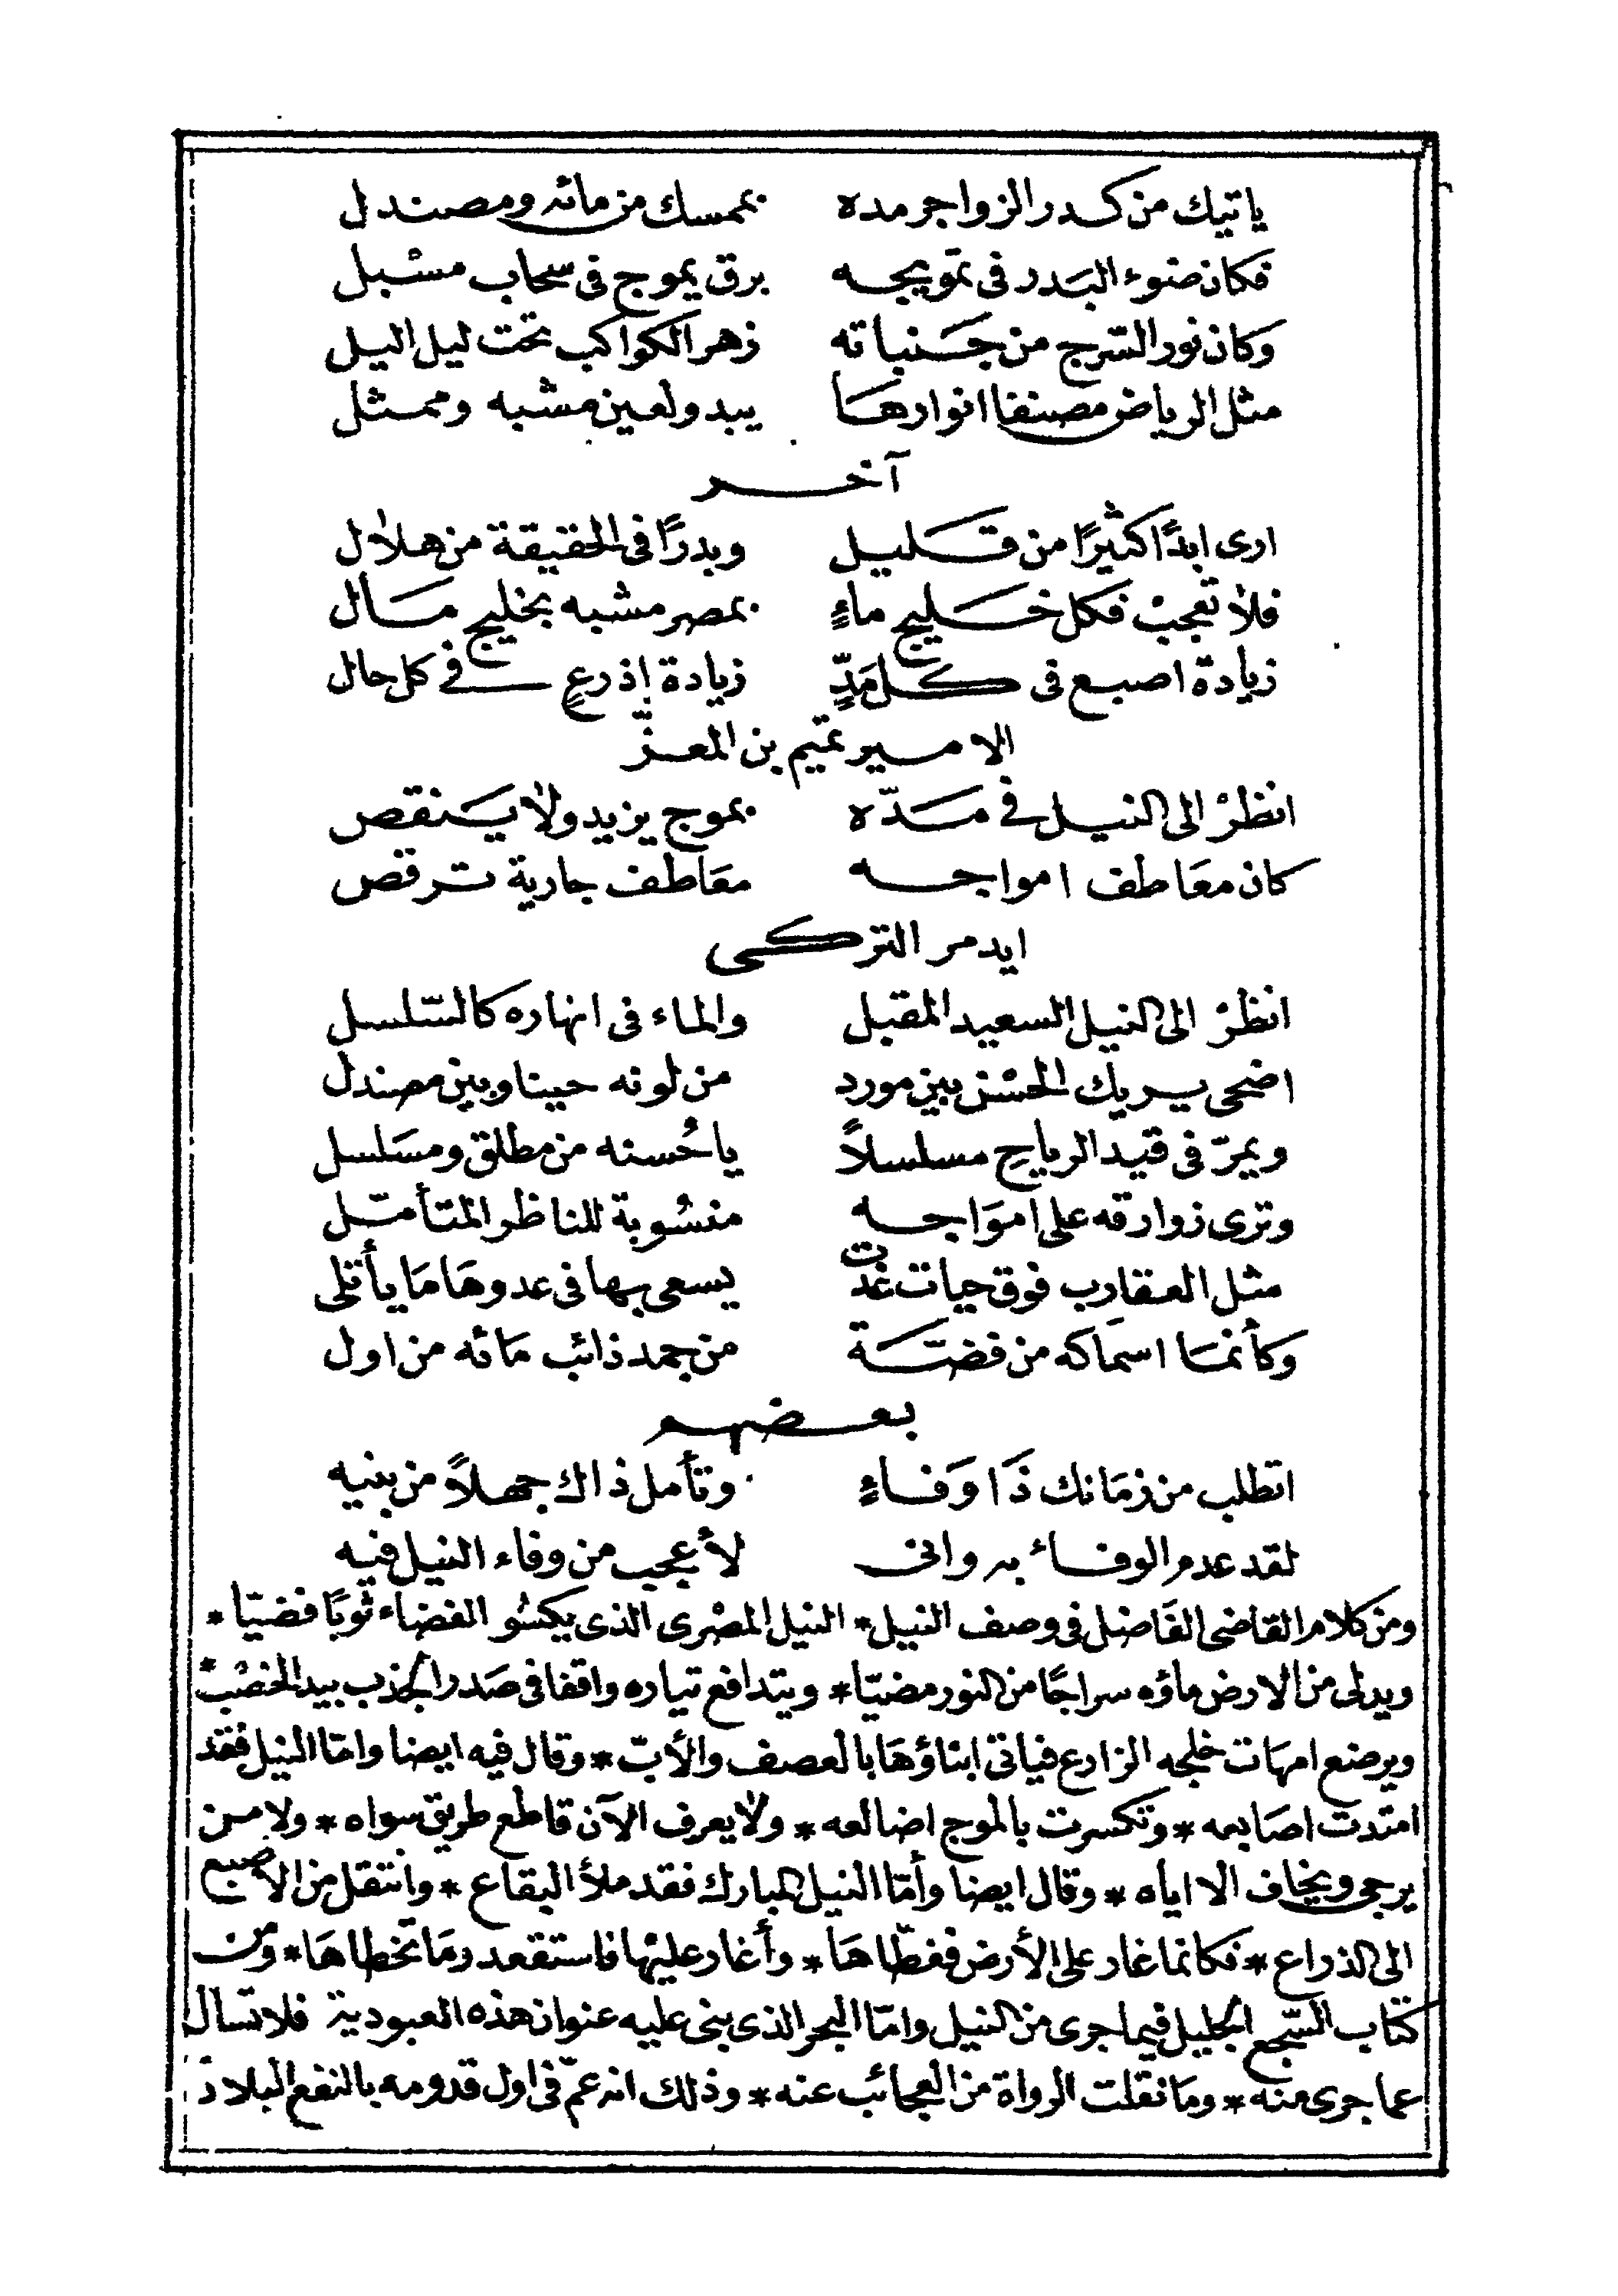 ياتيك من كدر الزواجر مده   بممسك من مائه ومصندل
فكان ضوء البَدر فى تمويجه   برق يموج فى سحاب مسْبل
وكان نور السّرج من جَنباته   زهر الكواكب تحت ليل اليل
مثل الرياض مصنفا انوارهَا   يبدو لعين مشبه وممثل
آخر
ارى ابدًا كثيرًا من قليل   وبدرًا فى الحقيقة من هلال
فلا تعجبْ فكل خَليج ماءٍ   بمصر مشبه بخليج مَال
زيادة اصبع فى كل مَدٍّ   زيادة اذرعٍ فى كل حال
الامير تميم بن المعزّ
انظرْ الى النيل فى مَدّه   بموج يزيد ولا يَنقص
كان معَاطف امواجه   معَاطف جارية ترقص
ايدمر التركى
انظرْ الى النيل السعيد المقبل   والماء فى انهاره كالسّلسل
اضحى يريك الحسْن بين مورد   من لونه حينا وبين مصندل
ويمرّ فى قيد الرياحِ مسلسلاً   يا حُسنه من مطلق ومسَلسل
وترى زوارقه على امَواجه   منسُوبة للناظر المتأمّل
مثل العقارب فوق حيات غدت   يسعى بها فى عدوهَا مَا يأتلى
وكأنمَا اسمَاكه من فضّة   من جمد ذائب مَائه من اول
بعضهم
اتطلب من زمَانك ذَا وَفاءٍ   وتأمل ذاك جهلاً من بنيه
لقد عدم الوفاء به وانى   لأعجب من وفاء النيل فيه
ومن كلام القاضى الفَاضل فى وصف النيل * النيل المصْرى الذى يكسُو الفضاء ثوبًا فضيّا *
ويدلى من الارض ماؤه سراجًا من النور مضيّا * ويتدافع تياره واقفا فى صَدر الجدب بيد الخصْب *
ويرضع امهَات خلجه الزارع فياتى ابنَاؤهَا بالعصف والأبّ * وقال فيه ايضا وامّا النيل فقد
امتدت اصَابعه * وتكسرت بالموج اضالعه * ولا يعرف الآن قاطع طريق سواه * ولا من
يرجى ويخاف الا اياه * وقال ايضا وأمّا النيل المبارك فقد ملأ البقاع * وانتقل من الاصبع
الى الذراع * فكانما غار على الأرض فغطّاهَا * وأغار عليْها فاستقعد ومَا تخطاهَا * ومن
كتاب السّجع الجليل فيما جرى من النيل وامّا البحر الذى بنى عليه عنوان هذه العبودية فلا تسال
عما جرى منه * ومَا نقلت الرواة من العجائب عنه * وذلك انه عمّ فى اول قدومه بالنفع البلاد